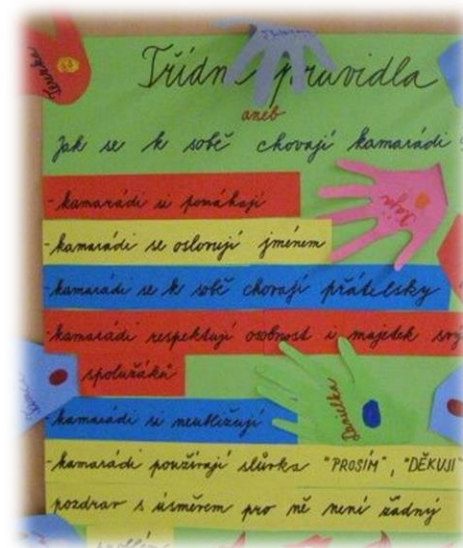 Třídní pravidla
aneb
Jak se k sobě chovají kamarádi
- kamarádi si pomáhají
- kamarádi se oslovují jménem
- kamarádi se k sobě chovají přátelsky
- kamarádi respektují osobnost i majetek svý
spolužáků
- kamarádi si neubližují
- kamarádi používají slůvka "PROSÍM", "DĚKUJI"
pozdrav s úsměvem pro ně není žádný
Terezka
Danielka